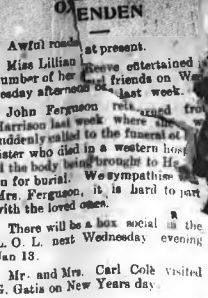 ENDEN
Awful roads at present.
Miss Lillian Reeve entertained
number of her friends on
esday afternoon of last week.
John Ferguson
Harrison last week where
suddenly called to the funeral of
sister who died in a western
the body being brought to
n for burial. We sympathise
Mrs. Ferguson, it is hard to part
with the loved ones.
There will be a box social in the
L. O. L. next Wednesday evening
Jan 13.
Mr. and Mrs. Carl Cole visited
G. Gatis on New Years day.